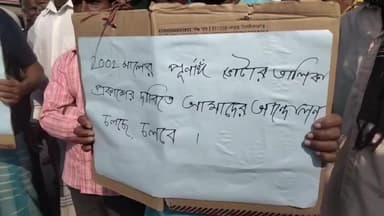 2002 সালের পূর্ণাঙ্গ ভোটার তালিকা
প্রকাশের দাবিতে আমাদের আন্দোলন
চলছে চলবে ।